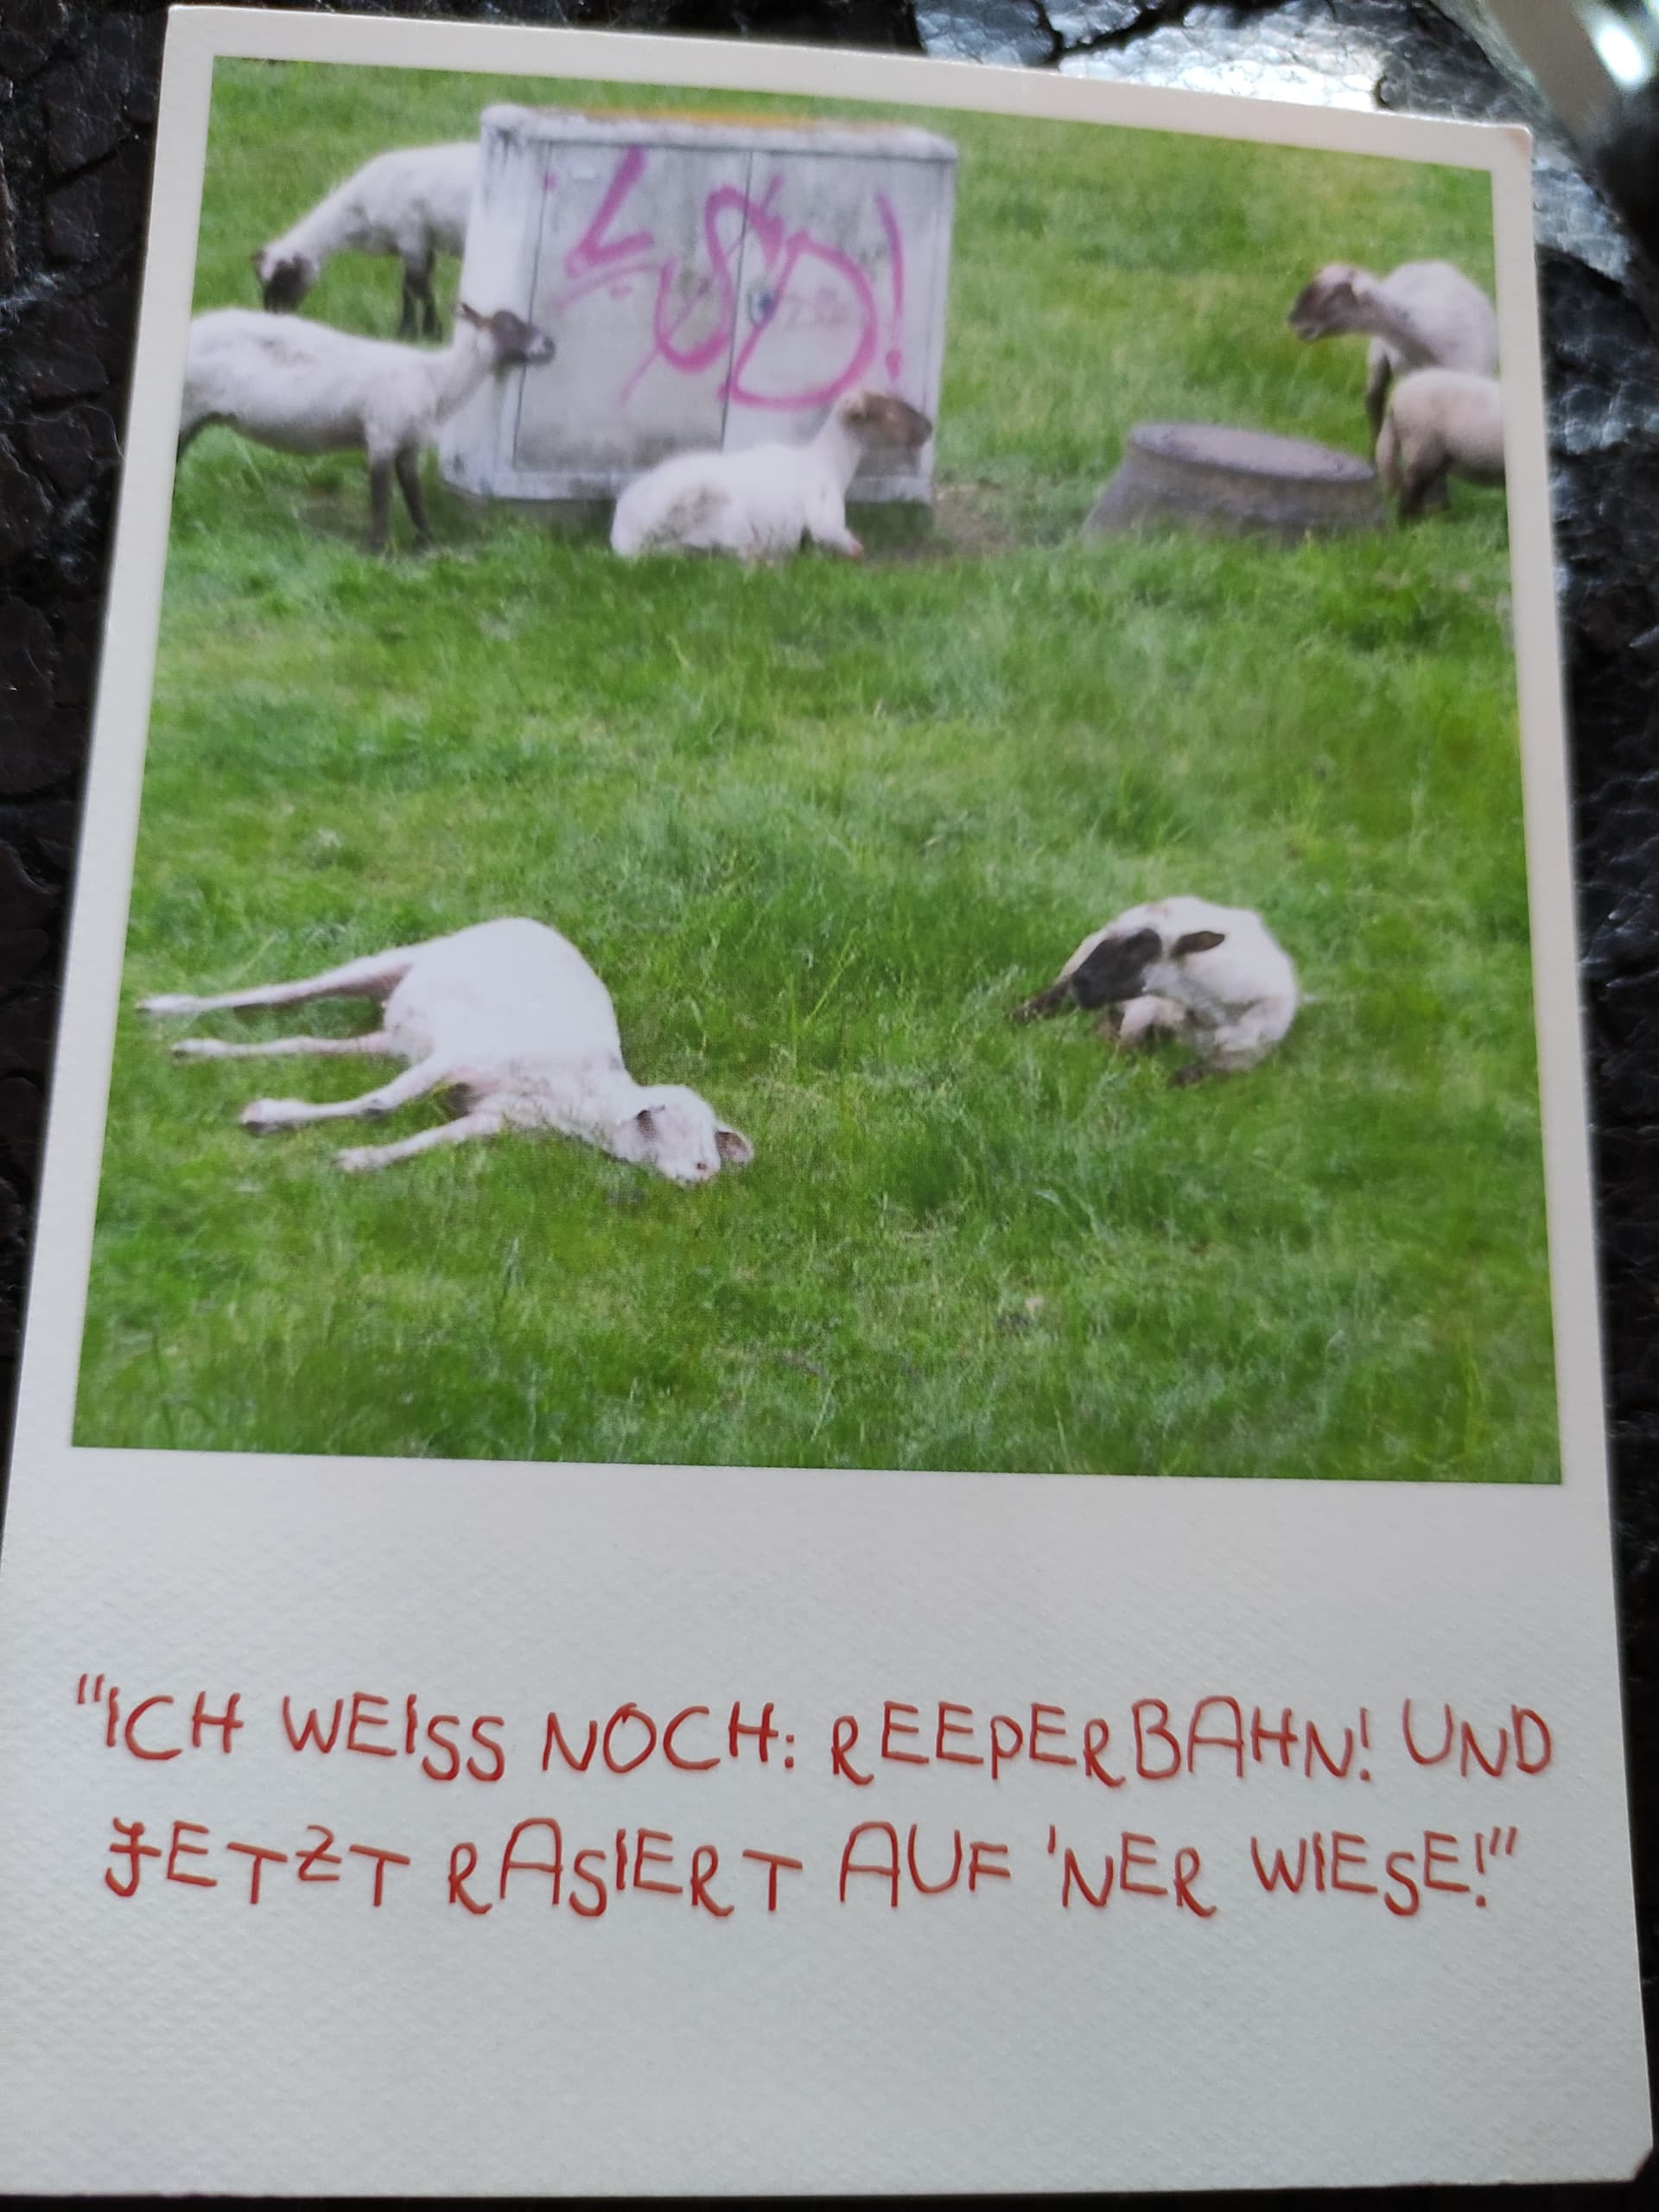 LSD!
"ICH WEISS NOCH: REEPERBAHN! UND
JETZT RASIERT AUF 'NER WIESE!"